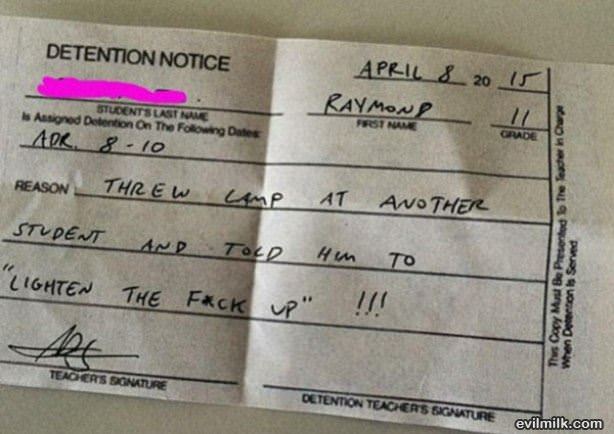 DETENTION NOTICE
APRIL 8 20 15
RAYMOND 11
STUDENT'S LAST NAME FIRST NAME GRADE
Is Assigned Detention On The Following Dates:
APR. 8-10
REASON THREW LAMP AT ANOTHER
STUDENT AND TOLD HIM TO
"LIGHTEN THE F*CK UP" !!!
TEACHER'S SIGNATURE
DETENTION TEACHER'S SIGNATURE
This Copy Must Be Presented To The Teacher in Charge
When Detention Is Served
evilmilk.com